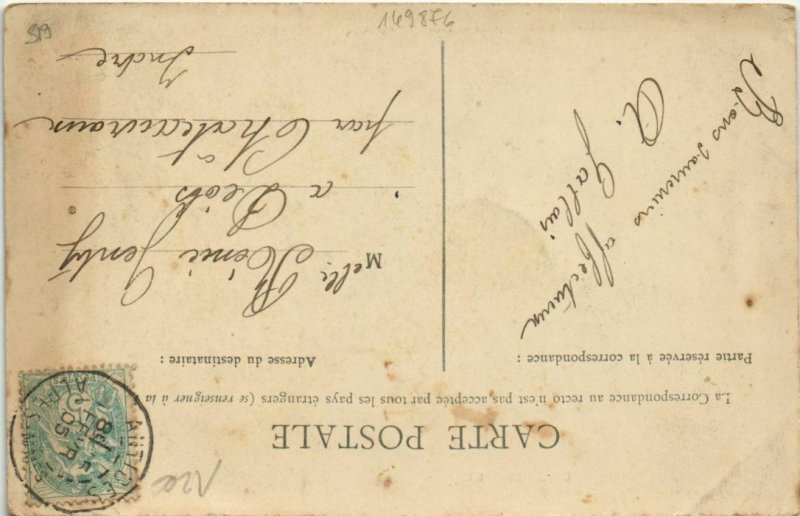 CARTE POSTALE
La Correspondance au recto n'est pas acceptée par tous les pays étrangers (se renseigner à la
Partie réservée à la correspondance :
Adresse du destinataire :
Bons souvenirs
affectueux
A. Gallais
Melle Rémi Genty
à Déols
par Châteauroux
Indre
ANTIBES
ALPES-MMES
FEVR
05
149876
519